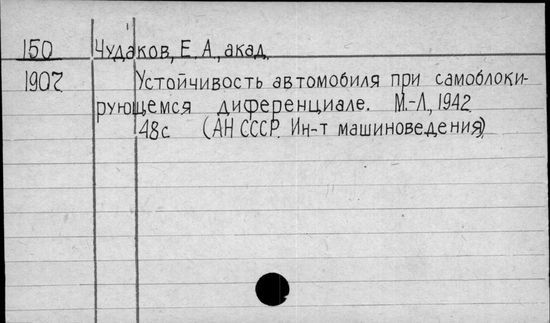 150 Чудаков, Е. А., акад.
1907 Устойчивость автомобиля при самоблоки-
рующемся диференциале. М.-Л., 1942
48с (АН СССР. Ин-т машиноведения)